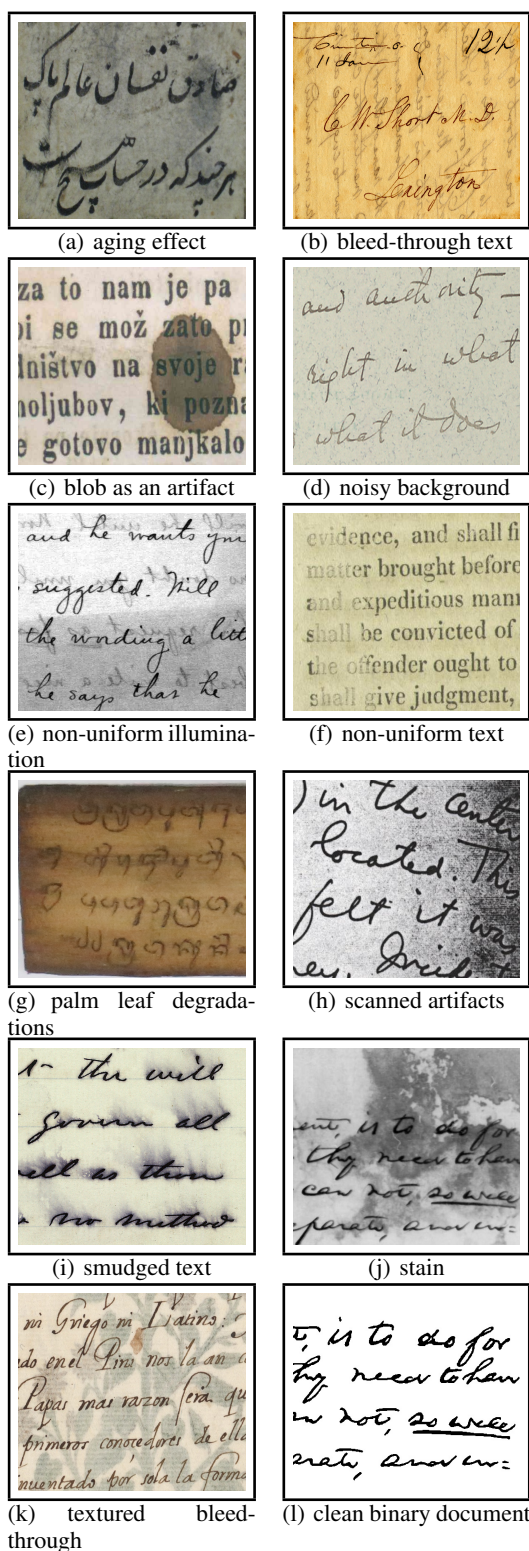 صادق نفسان عالم پاک
هر چند که در حساب هیچ است
(a) aging effect
12½
C. W. Short M. D.
Lexington
(b) bleed-through text
za to nam je pa
oi se mož zato pr
lništvo na svoje ra
noljubov, ki pozna
e gotovo manjkalo
(c) blob as an artifact
and authority —
right in what
what it does
(d) noisy background
and he wants you
suggested. Will
the wording a litt
he says that he
(e) non-uniform illumina-
tion
evidence, and shall fi
matter brought before
and expeditious mann
shall be convicted of
the offender ought to
shall give judgment,
(f) non-uniform text
(g) palm leaf degrada-
tions
) in the center
located. This
felt it was
ey. Incide
(h) scanned artifacts
the will
govern all
ell as them
no method
(i) smudged text
ent, is to do for
thy never to hav
can not, so well
eparate, and un=
(j) stain
ni Griego ni Latino:
do en el Pirú nos la an
Papas mas razon fera qu
primeros conocedores de ella
inuentado por sola la forma
(k) textured bleed-
through
is to do for
hy never to hav
not, so well
arate, and un=
(l) clean binary document